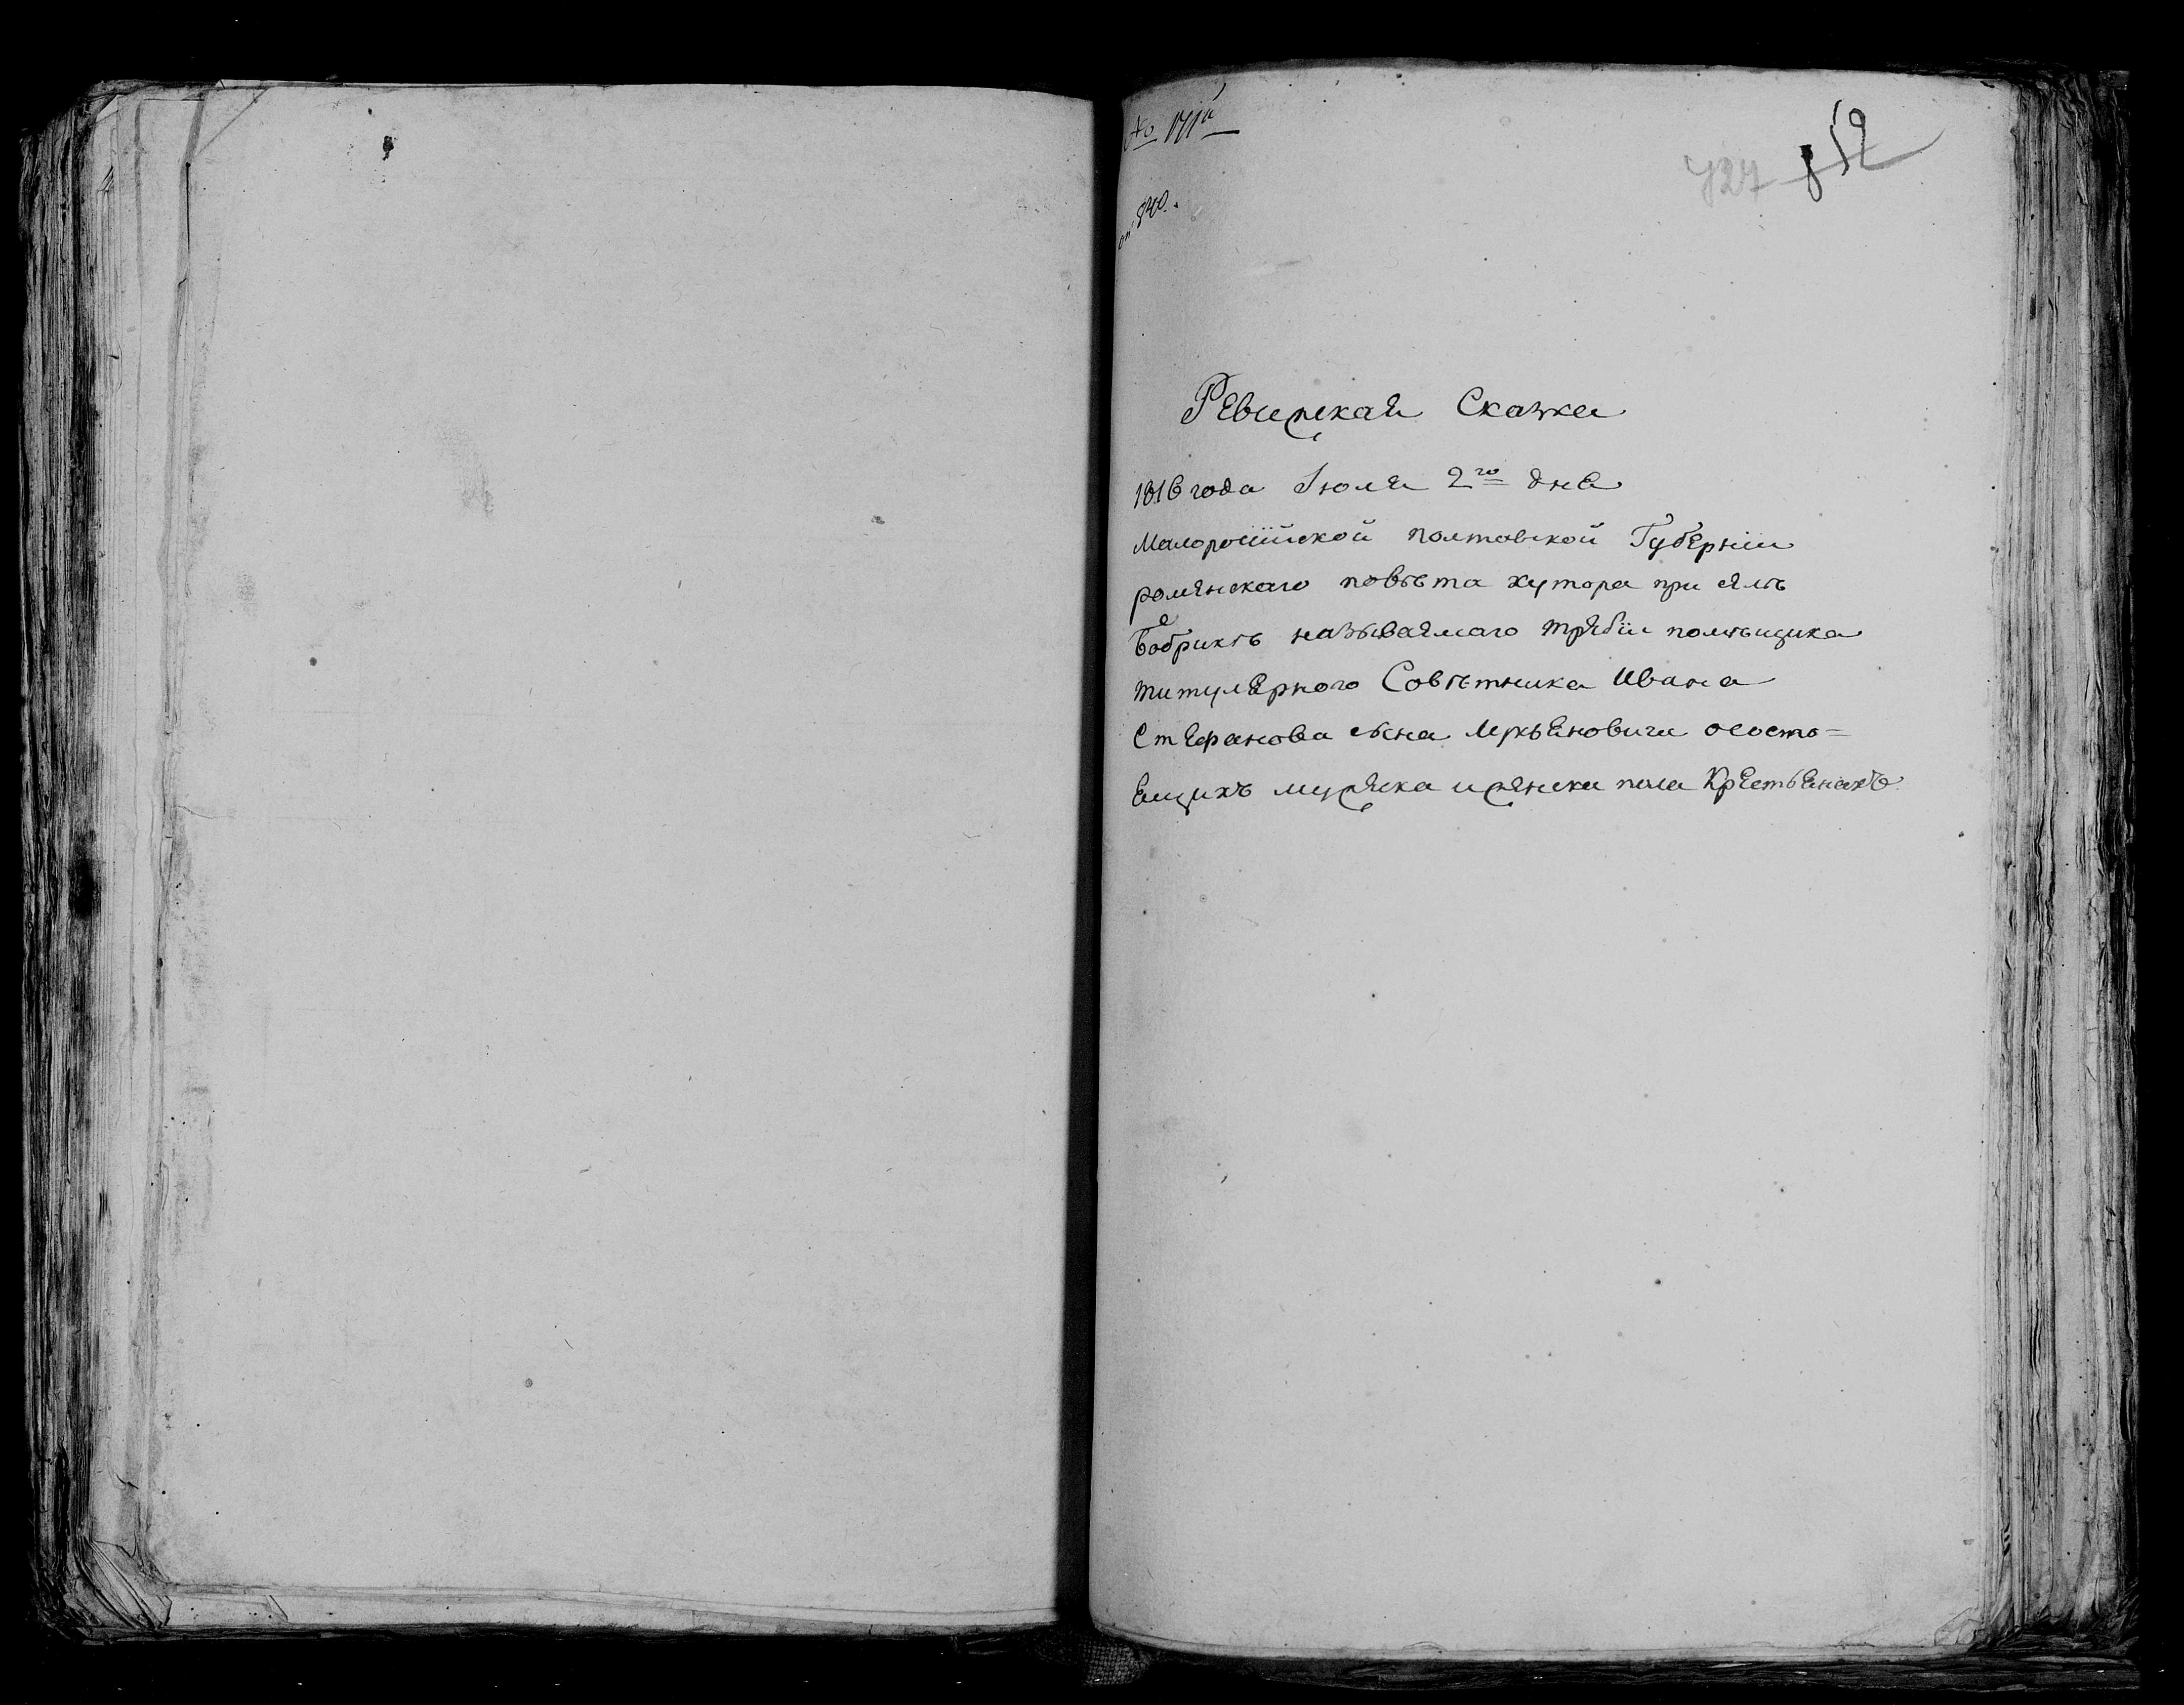 727 852
840.
Ревизская Сказка
1816 года Іюля 2го дня
Малороссійской полтавской Губерніи
роменскаго повѣта хутора при селѣ
Бобрикѣ називаемаго помѣщика
титулярного Совѣтника Ивана
Стефанова сына Лукьяновича ососто=
ящихъ мужеска и женска пола Крестьянахъ